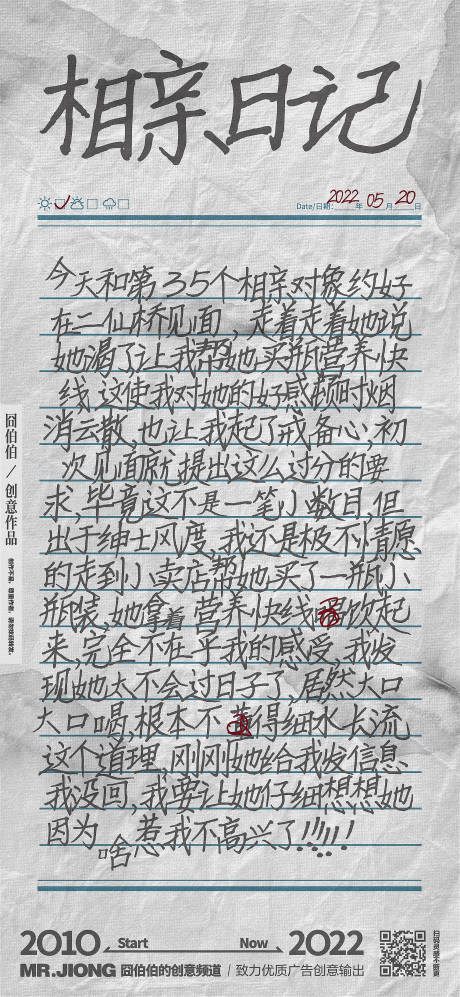 相亲日记
Date/日期: 2022 年 05 月 20 日
今天和第35个相亲对象约好
在二仙桥见面,走着走着她说
她渴了让我帮她买瓶营养快
线,这使我对她的好感顿时烟
消云散,也让我起了戒备心,初
次见面就提出这么过分的要
求,毕竟这不是一笔小数目,但
出于绅士风度,我还是极不情愿
的走到小卖店帮她买了一瓶小
瓶装,她拿着营养快线 饮起
来,完全不在乎我的感受,我发
现她太不会过日子了,居然大口
大口喝,根本不 得细水长流
这个道理,刚刚她给我发信息
我没回,我要让她仔细想想她
因为啥惹我不高兴了!!!!!
囧伯伯/创意作品
2010 Start Now 2022
MR.JIONG 囧伯伯的创意频道 / 致力优质广告创意输出